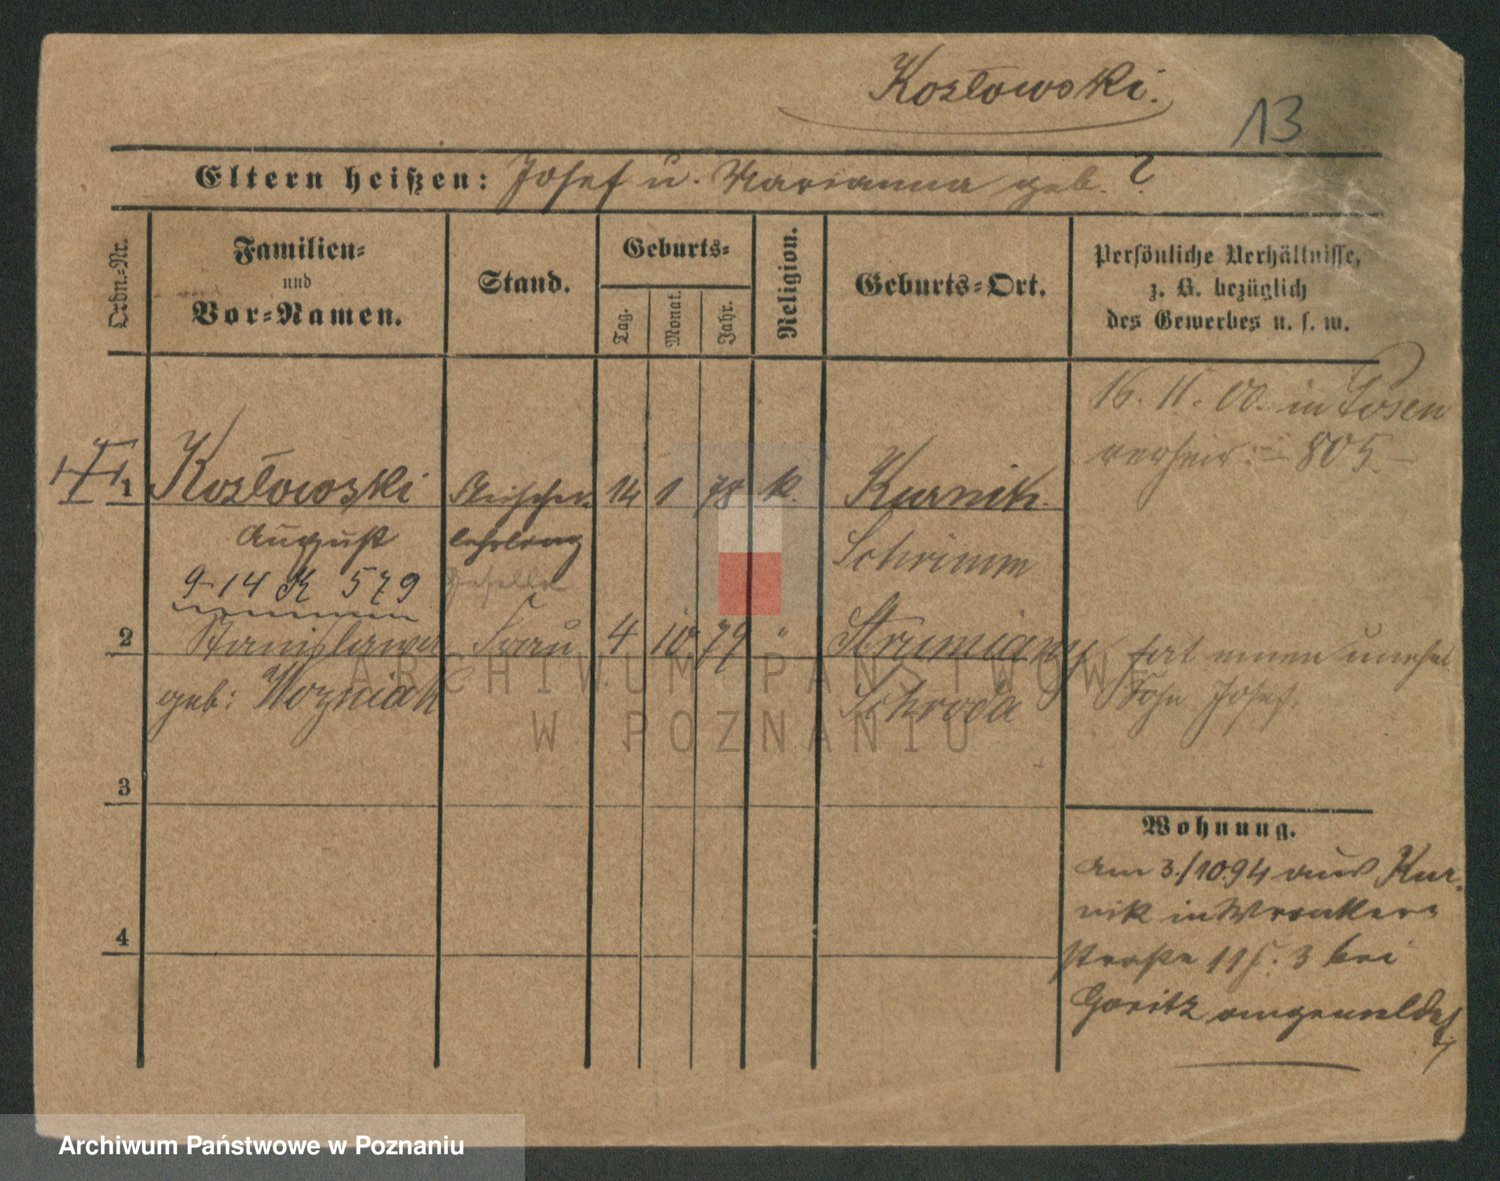 Kozłowski.
13
Eltern heißen: Josef u. Marianna geb. ?
Ordn.-Nr.
Familien-
und
Vor-Namen.
Stand.
Geburts-
Tag.
Monat.
Jahr.
Religion.
Geburts-Ort.
Persönliche Verhältnisse,
z. B. bezüglich
des Gewerbes u. s. w.
16. 11. 00. in Posen
verheir. – 805 –
1 Kozłowski Fleischer- 14 1 78 k. Kurnik.
August lehrling Schrimm
9-14 K 579 Geselle
2 Stanislawa Frau 4 10. 79 " Strumiany hat einen unehel
geb: Wozniak Schroda Sohn Josef.
3
4
Wohnung.
Am 3./10.94 aus Kur-
nik in Wronker-
straße 11 3 bei
Goritz angemeldet
ARCHIWUM PAŃSTWOWE
W POZNANIU
Archiwum Państwowe w Poznaniu